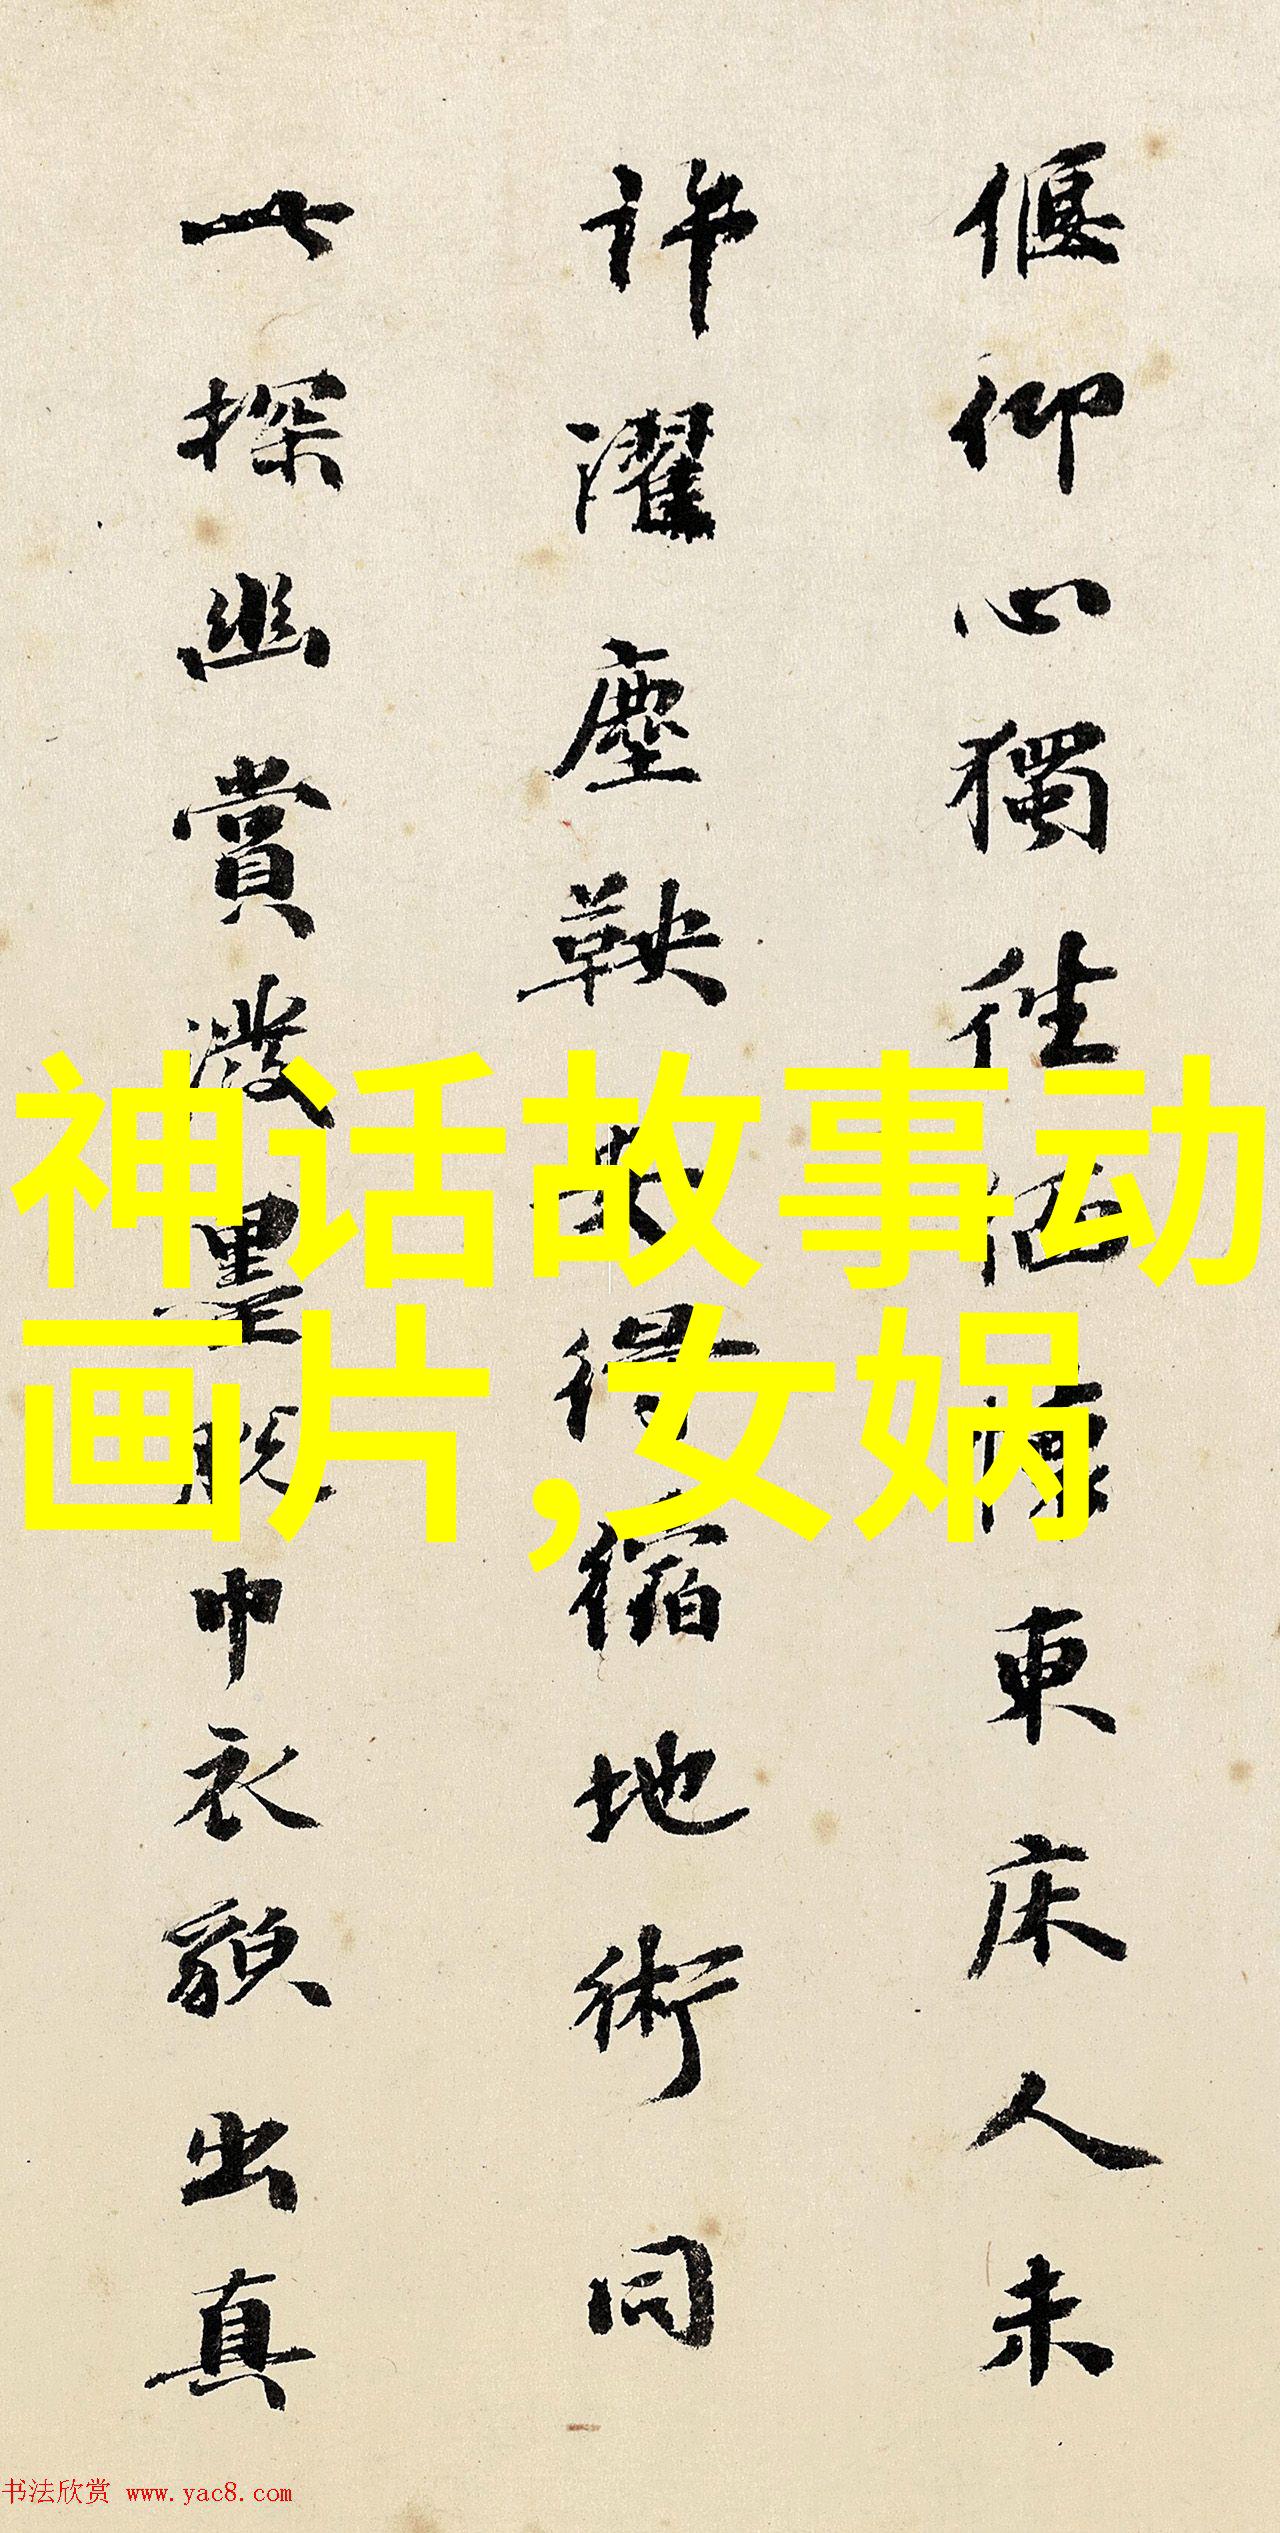 偃仰心獨往東床人未
許濯塵鞅得縮地術同
探幽賞潑墨脫巾衣貌出真
神话故事动
画片,女娲
书法欣赏 www.yac8.com